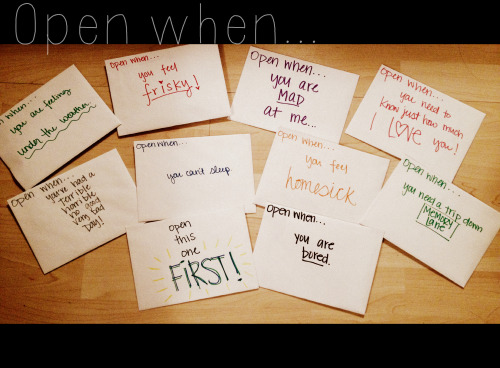 Open when...
Open when...
you are feeling
under the weather
Open when...
you feel
frisky!
Open when...
you are
MAD
at me...
Open when...
you need to
know just how much
I L♡VE you!
Open when...
you've had a
terrible
horrible
no good
very bad
Day!
Open when...
you can't sleep
Open when...
you feel
homesick
Open when...
you need a trip down
MEMORY
LANE
Open
this
one
FIRST!
Open when...
you are
bored.